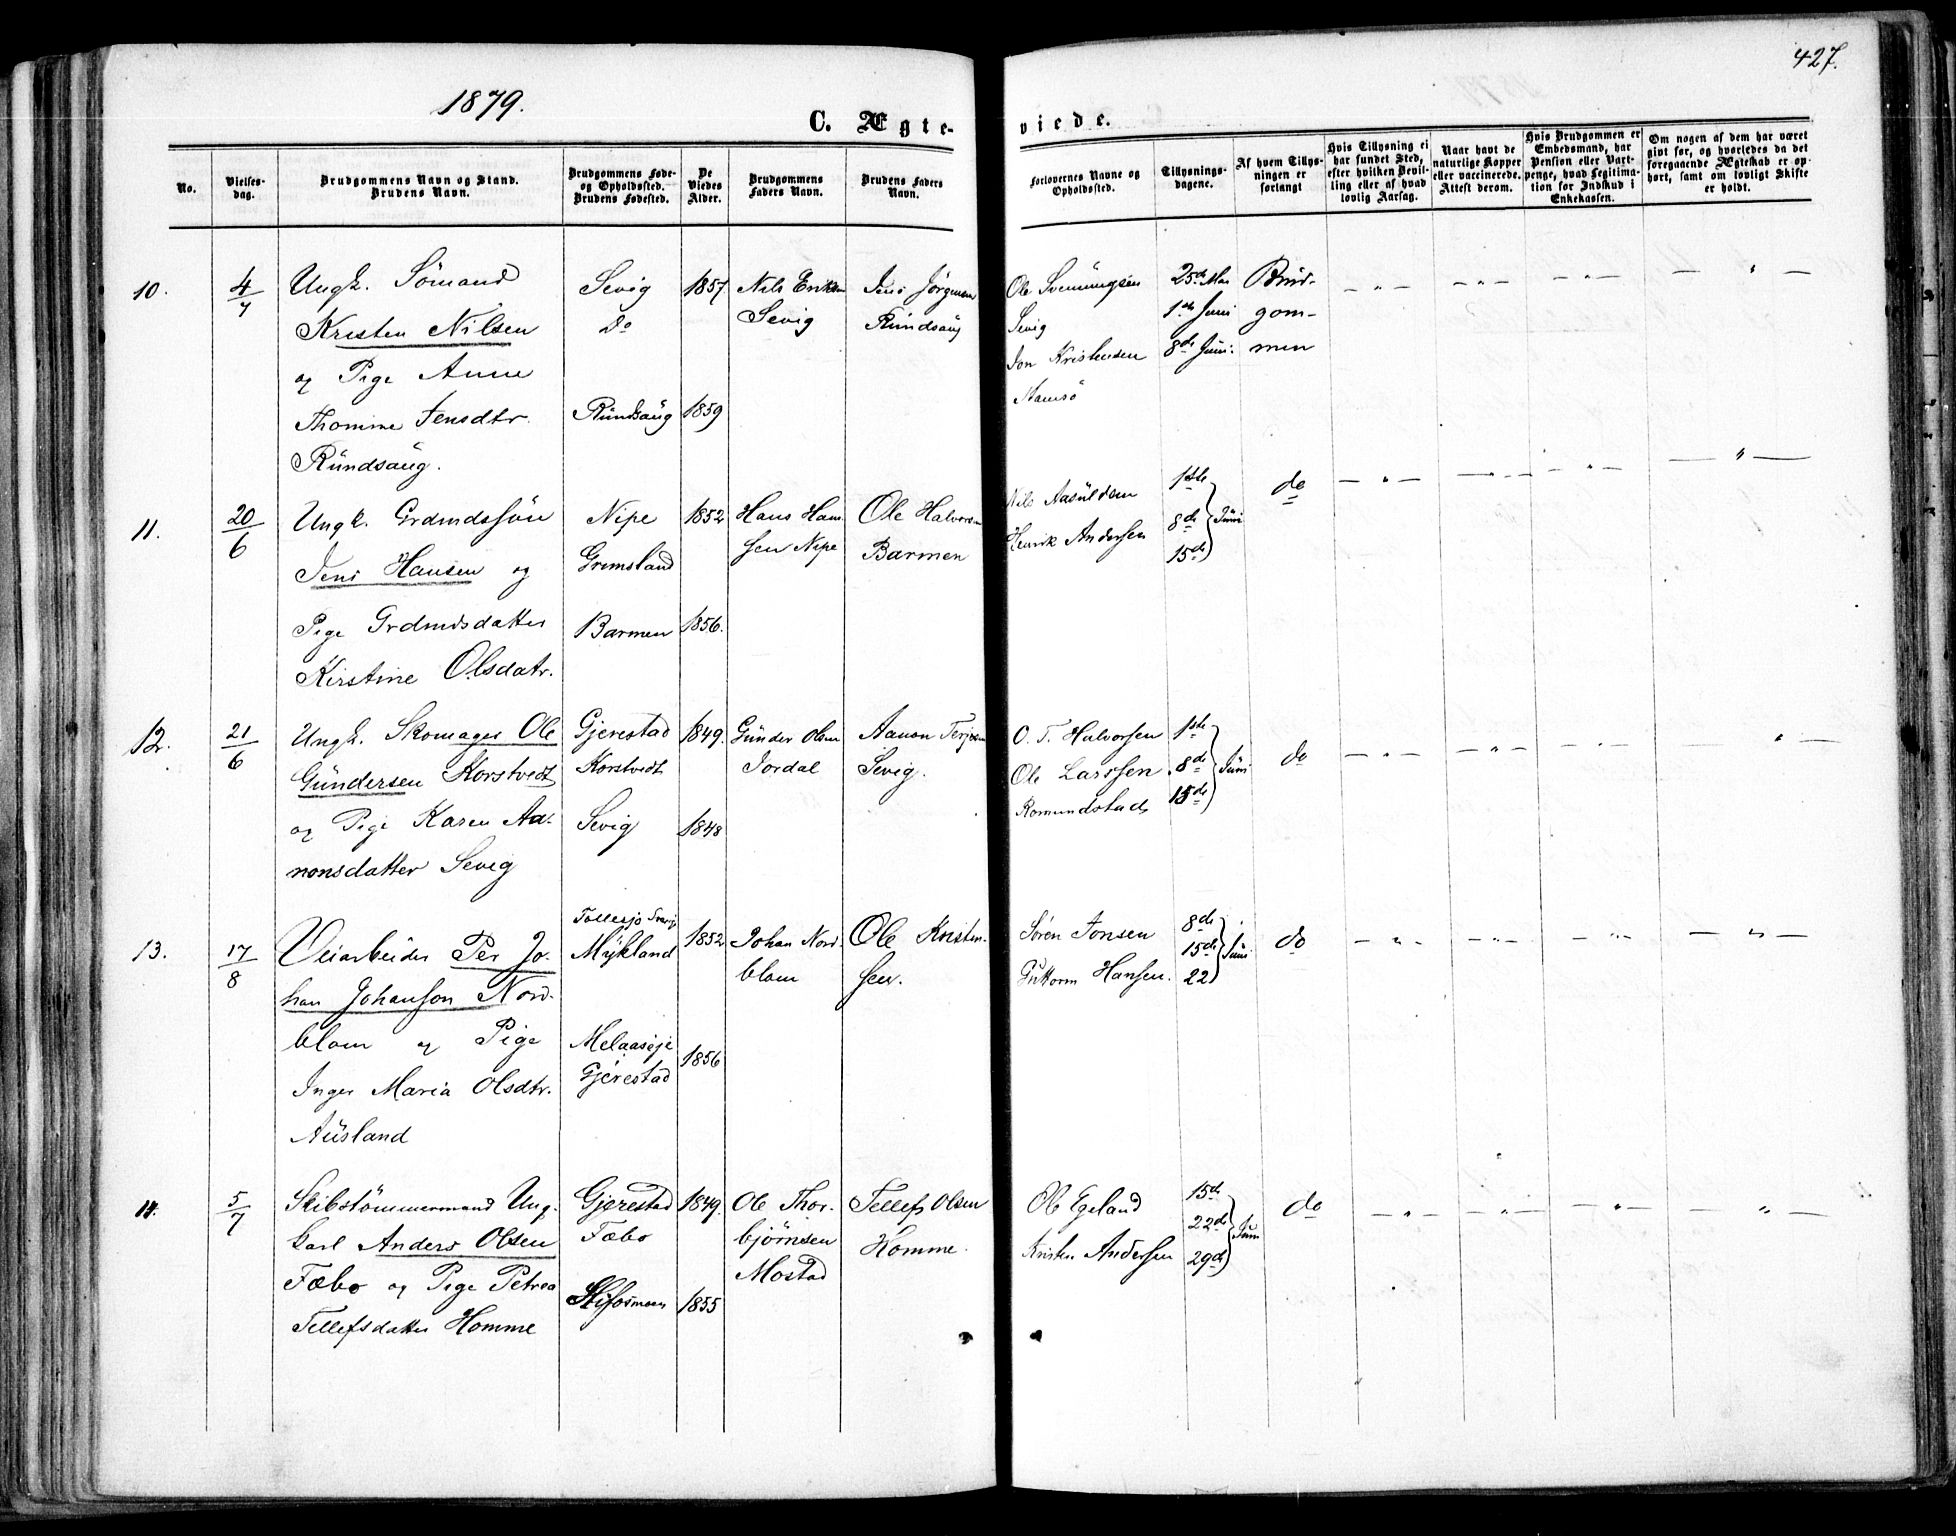 1879.
427.
C. Ægte-
viede.
No.
Vielses-
dag.
Brudgommens Navn og Stand.
Brudens Navn.
Brudgommens Føde-
og Opholdssted.
Brudens Fødested.
De
Viedes
Alder.
Brudgommens
Faders Navn.
Brudens Faders
Navn.
Forlovernes Navne og
Opholdssted.
Tillysnings-
dagene.
Af hvem Tillys-
ningen er
forlangt
Hvis Tillysning ei
har fundet Sted,
efter hvilken Bevil-
ling eller af hvad
lovlig Aarsag.
Naar havt de
naturlige Kopper
eller vaccinerede.
Attest derom.
Hvis Brudgommen er
Embedsmand, har
Pension eller Vart-
penge, hvad Legitima-
tion for Indskud i
Enkekassen.
Om nogen af dem har været
givt før, og hvorledes da det
foregaaende Ægteskab er op-
hørt, samt om lovligt Skifte
er holdt.
10.
4/7
Ungk. Sömand
Kristen Nilsen
og Pige Anne
Thomine Jensdtr.
Ründsaug.
Sevig
Do
Ründsaug
1857
1859
Nils Eriksen
Sevig
Jens Jörgensen
Ründsaug
Ole Svenningsen
Sevig
Jon Kristensen
Hamsö
25de Mai
1ste Juni
8de Juni:
Brud-
gom-
men
11.
20/6
Ungk. Grdmdssön
Jens Hansen og
Pige Grdmdsdatter
Kirstine Olsdatr.
Nipe
Gremsland
Barmen
1852
1856.
Hans Han-
sen Nipe
Ole Halvorsen
Barmen
Nils Aasüldsen
Henrik Andersen
1ste
8de
15de
Jüni
do
12.
21/6
Ungk. Skomager Ole
Gündersen Korstvedt
og Pige Karen Aa-
nonsdatter Sevig
Gjerestad
Korstvedt
Sevig
1849.
1848
Günder Olsen
Jordal
Aanon Terjesen
Sevig.
O. T. Halvorsen
Ole Larssen
Romundstad
1ste
8de
15de
Jüni
do
13.
17/8
Veiarbeider Per Jo-
han Johanson Nord-
blom og Pige
Inger Maria Olsdtr.
Aüsland
Mykland
Melaasöje
Gjerestad
1852
1856
Johan Nord-
blom
Ole Kristen-
sen.
Søren Jonsen
Guttorm Hansen.
8de
15de
22
Juni
do
14.
5/7
Skibstömmermand Ung-
karl Anders Olsen
Fæbo og Pige Petrea
Tellefsdatter Homme
Gjerestad
Fæbo
Stifosmoen
1849.
1855
Ole Thor-
björnsen
Mostad
Tellefs Olsen
Homme.
Ole Egeland
Kristen Andersen
15de
22de
29de
Juni
do